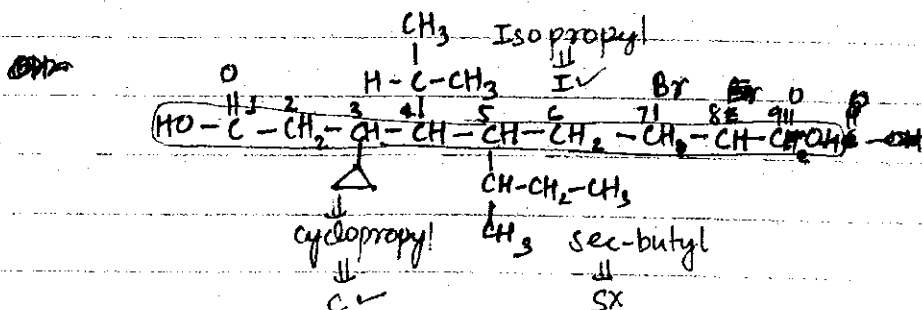 CH3 Isopropyl
H-C-CH3 I✓ Br
O 1 2 3 4 5 6 7 8 9 O
HO-C-CH2-CH-CH-CH-CH2-CH2-CH-C-OH
CH-CH2-CH3
cyclopropyl CH3 sec-butyl
C✓ SX